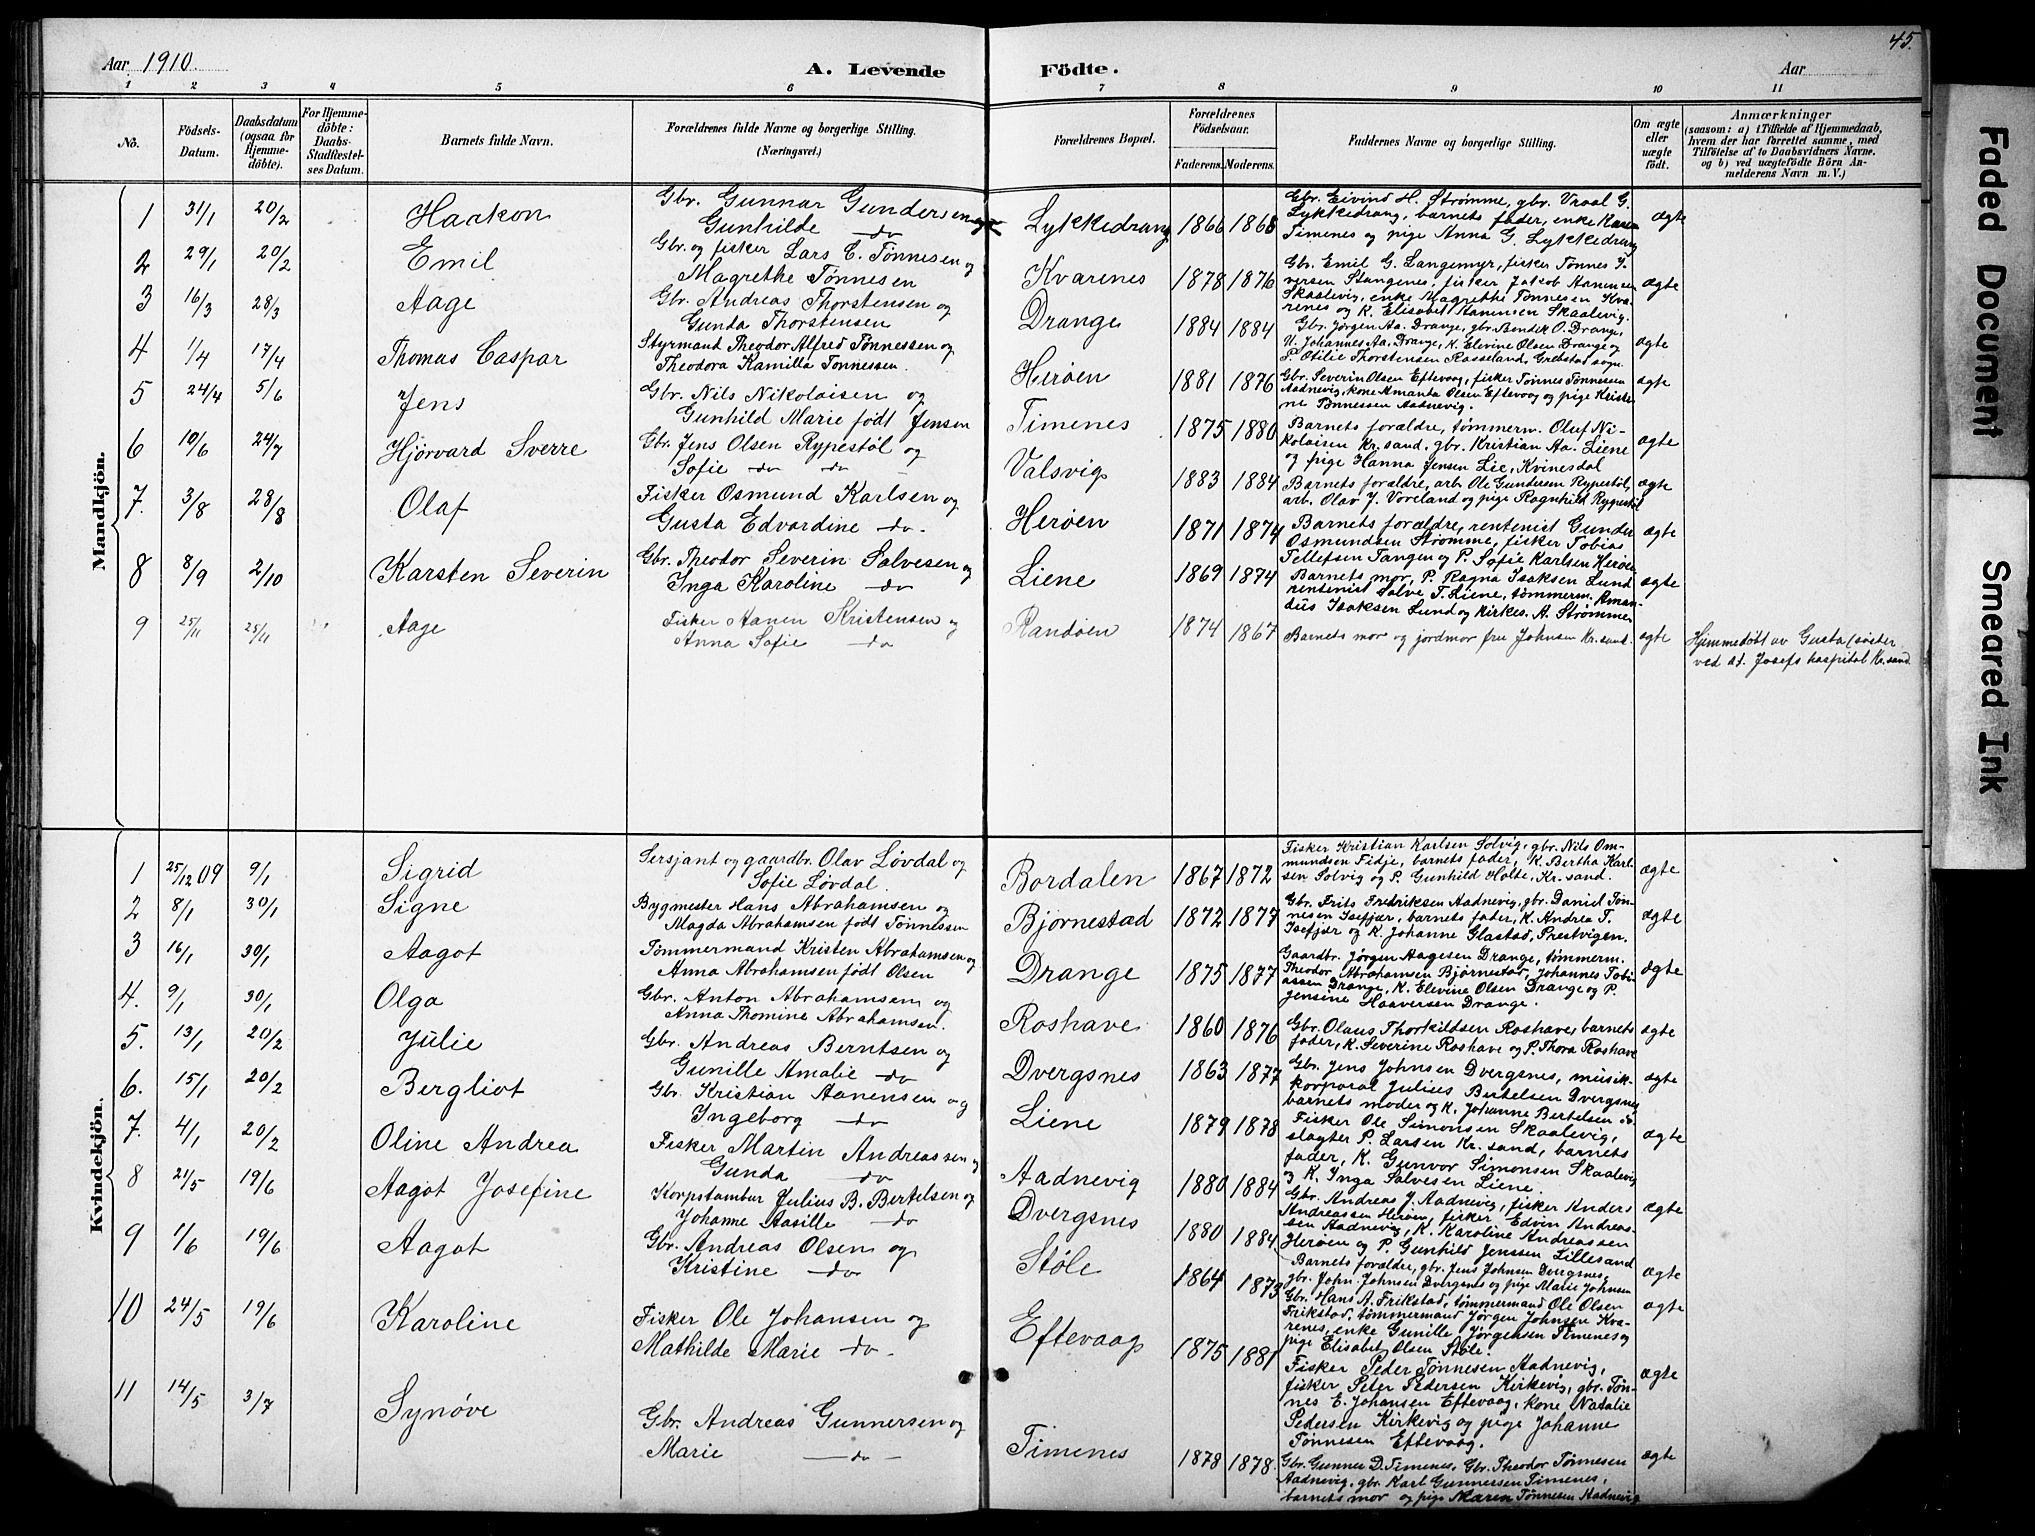 45.
Aar 1910.
A. Levende Födte.
Aar
1 2 3 4 5 6 7 8 9 10 11
No.
Födsels-Datum.
Daabsdatum (ogsaa for Hjemme-döbte).
For Hjemme-döbte: Daabs-Stadfæstelses Datum.
Barnets fulde Navn.
Forældrenes fulde Navne og borgerlige Stilling. (Næringsvei.)
Forældrenes Bopæl.
Forældrenes Födselsaar.
Faderens. Moderens.
Faddernes Navne og borgerlige Stilling.
Om ægte eller uægte födt.
Anmærkninger
(saasom: a) i Tilfælde af Hjemmedaab, hvem der har forrettet samme, med Tilföielse af to Daabsvidners Navne, og b) ved uægtefödte Börn Anmelderens Navn m. V.)
Mandkjön.
1 31/1 20/2 Haakon Gbr. Gunnar Gundersen og Gunhilde do Lykkedrang 1866 1868 Gbr. Eivind H. Strømme, gbr. Vraal G. Lykkedrang, barnets fader, enke Karen Timenes og pige Anna G. Lykkedrang ægte
2 29/1 20/2 Emil Gbr. og fisker Lars C. Tønnesen og Magrethe Tønnesen Kvarenes 1878 1876 Gbr. Emil G. Langemyr, fisker Tønnes Iversen Stangenes, fisker Jakob Aanensen Skaalevig, enke Magrethe Tønnesen Kvarenes og K. Elisabet Aanensen Skaalevig. ægte
3 16/3 28/3 Aage Gbr. Andreas Thorstensen og Gunda Thorstensen Drange 1884 1884 Gbr. Jørgen Aa. Drange, gbr. Bendik O. Drange, U. Johannes Aa. Drange, K. Elevine Olsen Drange og P. Otilie Thorstensen Rasseland, Grebstad sogn. ægte
4 1/4 17/4 Thomas Caspar Styrmand Theodor Alfred Tønnessen og Theodora Kamilla Tønnessen. Herøen 1881 1876 Gbr. Severin Olsen Eftevaag, fisker Tønnes Tønnessen Aadnevig, kone Amanta Olsen Eftevaag og pige Kristine Tønnessen Aadnevig. ægte
5 24/4 5/6 Jens Gbr. Nils Nikolaisen og Gunhild Marie født Jensen Timenes 1875 1880 Barnets foraldre, tømmerm. Oluf Nikolaisen Kr.sand, gbr. Kristian Aa. Liene og pige Hanna Jensen Lie, Kvinesdal ægte
6 10/6 24/7 Hjørvard Sverre Gbr. Jens Olsen Rypestøl og Sofie do do Valsvig 1883 1884 Barnets foraldre, arb. Ole Gundersen Rypestøl, arb. Olav J. Voreland og pige Ragnhild Rypestøl ægte
7. 3/8 28/8 Olaf Fisker Osmund Karlsen og Gusta Edvardine do. Herøen 1871 1874 Barnets forældre, rentenist Gunder Osmundsen Strømme, fisker Tobias Tellefsen Tangen og P. Sofie Karlsen Herøen ægte
8 8/9 2/10 Karsten Severin Gbr. Theodor Severin Salvesen og Inga Karoline do Liene 1869 1874 Barnets mor, P. Ragna Isaksen Lund rentenist Salve T. Liene, tømmerm. Amandus Isaksen Lund og kirkes. A. Strømmen ægte
9 25/11 25/11 Aage Fisker Aanen Kristensen og Anna Sofie do Randøen 1874 1867 Barnets mor og jordmor fru Johnsen Kr.sand. ægte Hjemmedøbt av Gusta søster ved st. Josefs hospital Kr.sand.
Kvindekjön.
1 25/12 09 9/1 Sigrid Sersjant og gaardbr. Olav Løvdal og Sofie Løvdal. Bordalen 1867 1872 Fisker Kristian Karlsen Solvig, gbr. Nils Ommundsen Fidje, barnets fader, K. Bertha Karlsen Solvig og P. Gunhild Holte, Kr.sand. ægte
2 8/1 30/1 Signe Bygmester Hans Abrahamsen og Magda Abrahamsen født Tønnessen Bjørnestad 1872 1877 Gbr. Frits Fredriksen Aadnevig, gbr. Daniel Tønnesen Isefjær, barnets fader, K. Andrea T. Isefjær og K. Johanne Glastad, Prestvigen. ægte
3 16/1 30/1 Aagot Tømmermand Kristen Abrahamsen og Anna Abrahamsen født Olsen Drange 1875 1877 Gaardbr. Jørgen Aagesen Drange, tømmerm. Theodor Abrahamsen Bjørnestad, Johannes Tobiassen Drange, K. Elevine Olsen Drange og P. Jensine Haaversen Drange. ægte
4. 9/1 30/1 Olga Gbr. Anton Abrahamsen og Anna Thomine Abrahamsen. Roshave 1860 1876 Gbr. Olaus Thorkildsen Roshave, barnets fader, K. Severine Roshave og P. Thora Roshave ægte
5. 13/1 20/2 Julie Gbr. Andreas Berntsen og Gunille Amalie do Dvergsnes 1863 1877 Gbr. Jens Johnsen Dvergsnes, musikkorporal Julius Bertelsen Dvergsnes, barnets moder og K. Johanne Bertelsen do. ægte
6. 15/1 20/2 Bergliot Gbr. Kristian Aanensen og Ingeborg do Liene 1879 1878 Fisker Ole Simonsen Skaalevig, slagter P. Larsen Kr.sand, barnets fader, K. Gunvor Simonsen Skaalevig og K. Inga Salvesen Liene. ægte
7. 4/1 20/2 Oline Andrea Fisker Martin Andreassen og Gunda do Aadnevig 1880 1884 Gbr. Andreas J. Aadnevig, fisker Anders Andreassen Herøen, fisker Edvin Andreassen Aadnevig, K. Karoline Andreassen Herøen og P. Gunhild Jenssen Lillesand ægte
8 21/5 19/6 Aagot Josefine Korpstambur Julius B. Bertelsen og Johanne Aasille do Dvergsnes 1880 1884 Barnets foraldre, gbr. Jens Johnsen Dvergsnes, gbr. John Johnsen Dvergsnes og pige Marie Johnsen ægte
9 1/6 19/6 Aagot Gbr. Andreas Olsen og Kristine do Støle 1864 1873 Gbr. Hans A. Frikstad, tømmermand Ole Olsen Frikstad, tømmermand Jørgen Johnsen Kvarenes, enke Gunille Jørgensen Timenes og pige Elisabet Olsen Støle. ægte
10 24/5 19/6 Karoline Fisker Ole Johansen og Mathilde Marie do. Eftevaag 1875 1881 Fisker Peder Tønnesen Aadnevig, fisker Peter Pedersen Kirkevig, gbr. Tønnes E. Johansen Eftevaag, kone Natalie Pedersen Kirkevig og pige Johanne Tønnesen Eftevaag. ægte
11 14/5 3/7 Synøve Gbr. Andreas Gunnersen og Marie do Timenes 1878 1878. Gbr. Gunner D. Timenes, Gbr. Theodor Tønnesen Aadnevig, gbr. Karl Gunnersen Timenes, barnets mor og pige Maren Tønnesen Aadnevig ægte
Faded Document
Smeared Ink